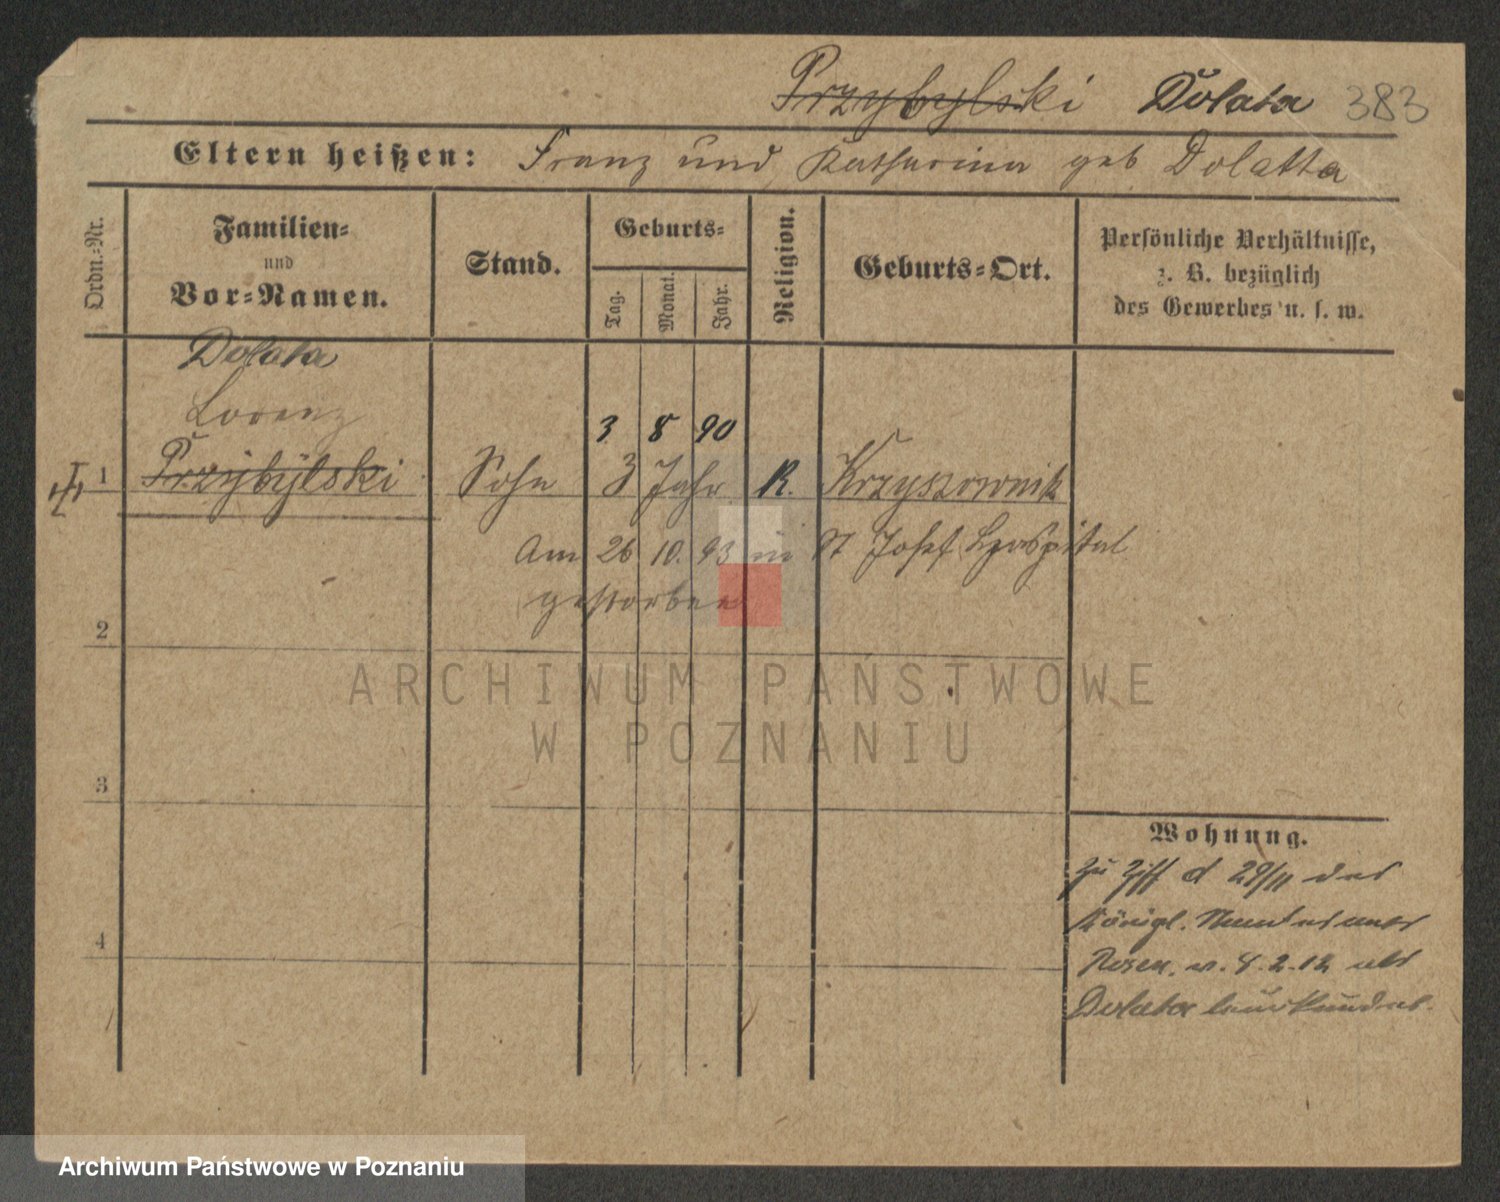 Przybylski Dolata 383
Eltern heißen: Franz und Katharina geb Dolatta
Ordn.-Nr.
Familien-
und
Vor-Namen.
Stand.
Geburts-
Tag.
Monat.
Jahr.
Religion.
Geburts-Ort.
Persönliche Verhältnisse,
z. B. bezüglich
des Gewerbes u. s. w.
Dolata
Lorenz
3 8 90
1 Przybylski Sohn 3 Jahr R. Krzyszownik
Am 26 10. 93 in St Josef Hospital
gestorben
2
3
4
Wohnung.
zu Ziff d 29/11 des
Königl.
Posen, v. 8.2.12 als
Dolata beurkundet.
ARCHIWUM PAŃSTWOWE
W POZNANIU
Archiwum Państwowe w Poznaniu